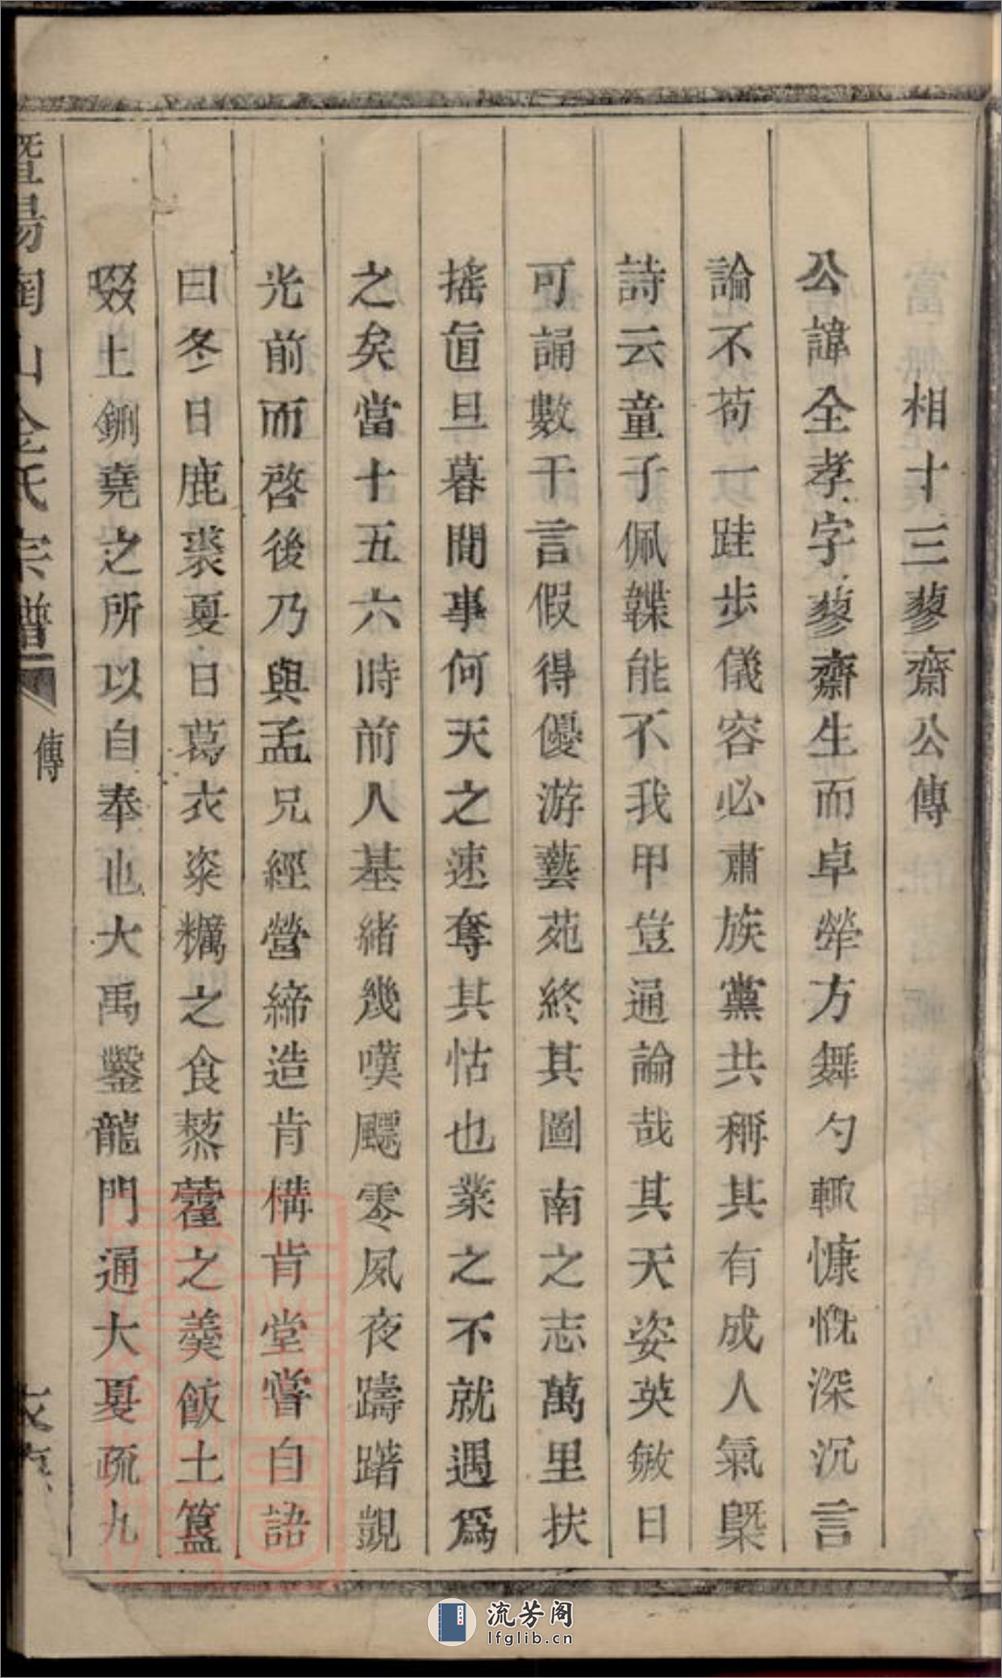 相十三蓼齋公傳
公諱全孝字蓼齋生而卓犖方舞勺輙慷慨深沉言
論不苟一跬步儀容必肅族黨共稱其有成人氣槩
詩云童子佩韘能不我甲豈通論哉其天姿英敏日
可誦數千言假得優游藝苑終其圖南之志萬里扶
搖直旦暮間事何天之速奪其怙也業之不就遇爲
之矣當十五六時前人基緒幾嘆飄零夙夜躊躇覬
光前而啓後乃與孟兄經營締造肯構肯堂嘗自語
曰冬日鹿裘夏日葛衣粢糲之食藜藿之羹飯土簋
啜土鉶堯之所以自奉也大禹鑿龍門通大夏疏九
暨陽 山金氏宗譜
傳
流芳阁
lfglib.cn